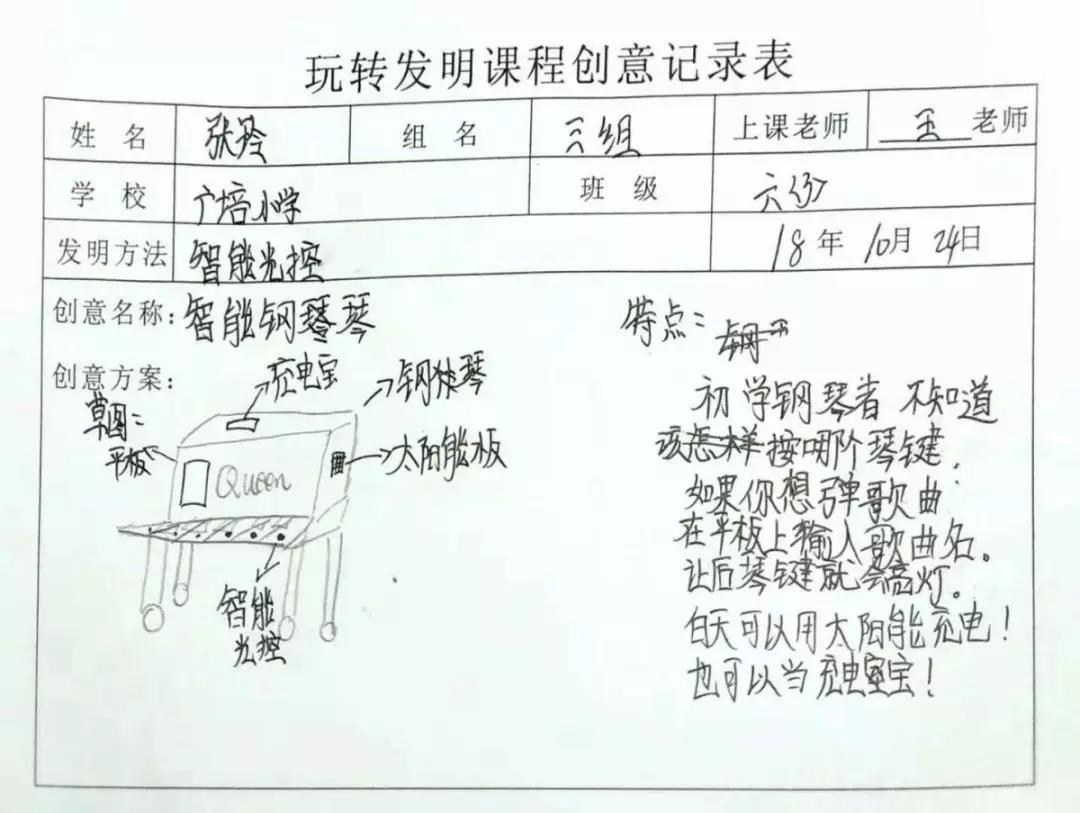 玩转发明课程创意记录表
姓 名 张玲 组 名 三组 上课老师 王 老师
学 校 广培小学 班 级 六(3)
发明方法 智能光控 18年 10月 24日
创意名称：智能钢琴琴
创意方案：
草图：
充电宝
钢琴
平板
Queen
太阳能板
智能
光控
特点：
初学钢琴者 不知道
该怎样按哪阶琴键，
如果你想弹歌曲
在平板上输入歌曲名。
让后琴键就会亮灯。
白天可以用太阳能充电！
也可以当充电宝！